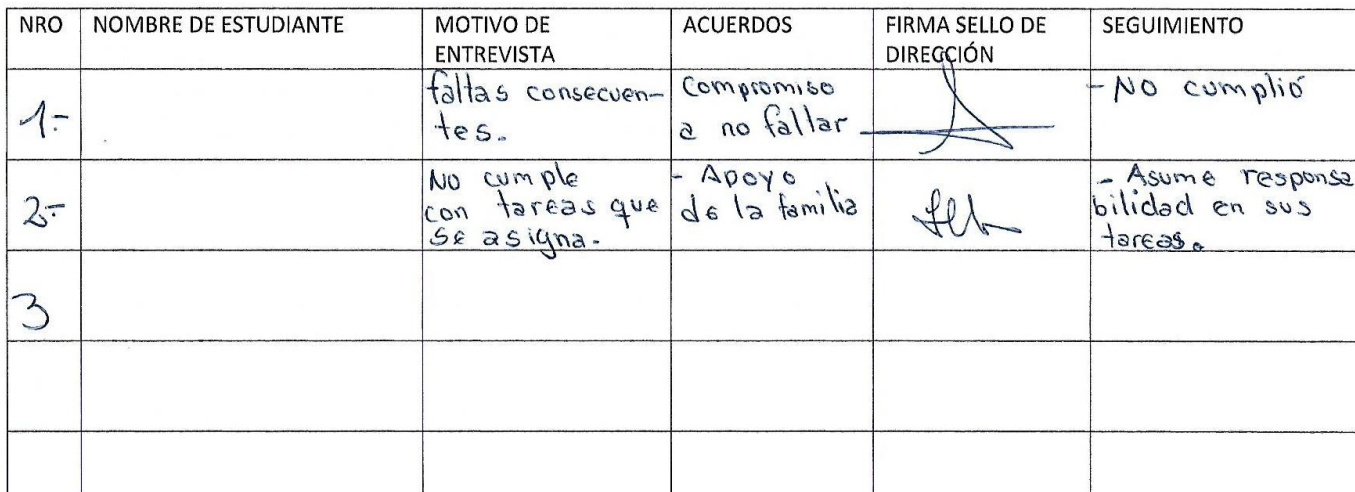 NRO NOMBRE DE ESTUDIANTE MOTIVO DE ENTREVISTA ACUERDOS FIRMA SELLO DE DIRECCIÓN SEGUIMIENTO
1.-
faltas consecuen-
tes.
Compromiso
a no fallar
- No cumplió
2.-
No cumple
con tareas que
se asigna.
- Apoyo
de la familia
- Asume responsa
bilidad en sus
tareas.
3